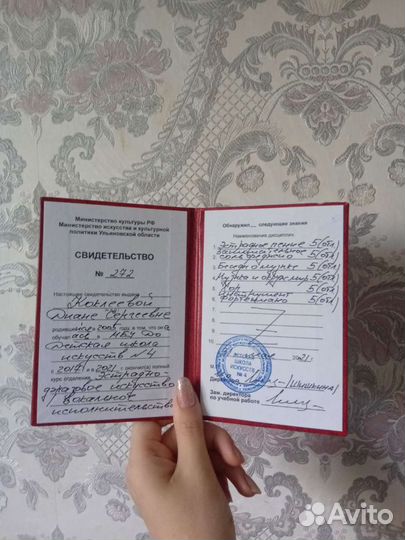 Министерство культуры РФ
Министерство искусства и культурной
политики Ульяновской области
СВИДЕТЕЛЬСТВО
№ 272
Настоящее свидетельство выдано
Диане Сергеевне
родившейся 2003 году, в том, что она
обучалась в МБУ ДО
Детская школа
искусств №4
с 2017 г. в 2021 г. окончил(а) полный
курс отделения Эстрадно-
джазовое искусство
Вокальное
исполнительство
Обнаружил__ следующие знания
Наименование дисциплин:
1. Эстрадное пение 5 (отл)
2. сольфеджио 5 (отл)
3. Беседы о музыке 5 (отл)
4. Музыка и окруж. мир 5 (отл)
5. Хор 5 (отл)
6. Инструмент
фортепиано 5 (отл)
7.
8.
9.
10.
2021 г.
ШКОЛА
ИСКУССТВ
№ 4
Директор
Зам. директора
по учебной работе
Avito